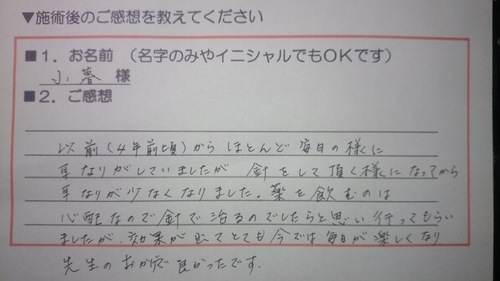 ▼施術後のご感想を教えてください
■1．お名前　（名字のみやイニシャルでもOKです）
小夢 様
■2．ご感想
以前（4年前頃）から ほとんど 毎日の様に
耳なりがしていましたが 針をして頂く様になってから
耳なりが少なくなりました。薬を飲むのは
心配なので針で治るのでしたらと思い行ってもらい
ましたが、効果が出てとても今では毎日が楽しくなり
先生のおかげで良かったです.